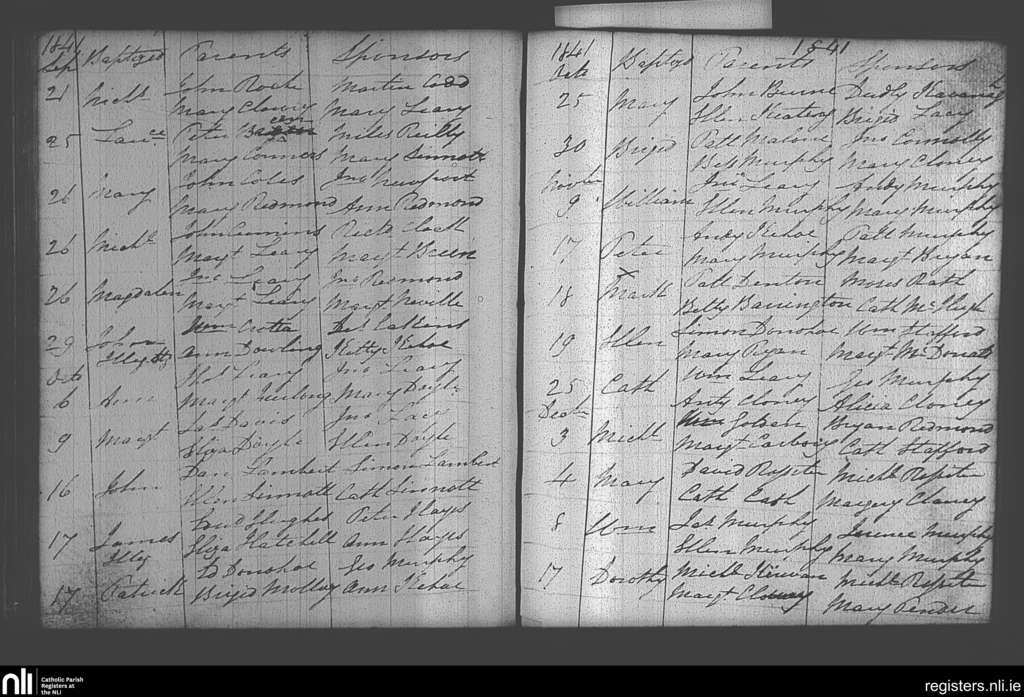 1841
Sep Baptized Parents Sponsors
21 Michl John Roche Martin Codd
Mary Clowry Mary Leary
25 Laurce Peter Miles Reilly
Mary Connors Mary Sinnott
26 Mary John Coles Jno Newport
Mary Redmond Ann Redmond
26 Michl John Commins
Margt Leary Margt
26 Magdalen Jno Leary Jno Redmond
Margt Leary Margt Neville
29 John Wm Crotta
Illegt Ann Dowling Kitty Kehoe
Octo Leary Jno Leary
6 Anne Margt Furlong Mary Doyle
9 Margt Jas Davis Jno Lacy
Eliza Doyle Ellen Doyle
16 John Dan Lambert Simon Lambert
Ellen Sinnott Cath Sinnott
17 James Hughes Peter Hayes
Illeg Eliza Hatchell Ann Hayes
17 Patrick Donohoe Geo Murphy
Briged Molloy Ann Kehoe
1841 1841
Octo Baptized Parents Sponsors
25 Mary John Burne
Ellen Keating Briged Lacy
30 Briged Patt Malone Jno Connolly
Bess Murphy Mary Cloney
Novber
9 William Jno Leary Andy Murphy
Ellen Murphy Mary Murphy
17 Peter Andy Kehoe Patt Murphy
Mary Murphy Margt Bryan
18 Patt Denton Moses Rath
Betty Barrington Cath
19 Ellen Simon Donohoe Wm Stafford
Mary Ryan Margt McDonald
25 Cath Wm Leary Geo Murphy
Anty Cloney Alicia Cloney
Decr
3 Michl Bryan Redmond
Margt Cath Stafford
4 Mary David Rositer Michl Rositer
Cath Cash Margery
8 Wm Jas Murphy Terence Murphy
Ellen Murphy Mary Murphy
17 Dorothy Michl Kirwan Michl Rositer
Margt Mary Pender
nli
Catholic Parish
Registers at
the NLI
registers.nli.ie